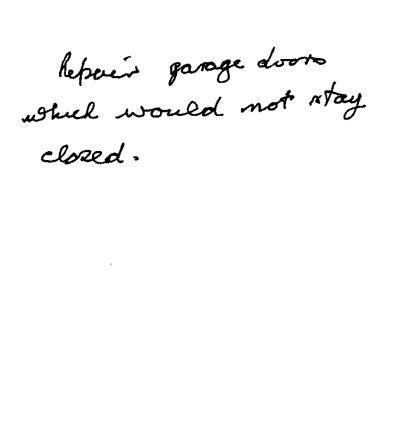 Repair garage doors
which would not stay
closed.